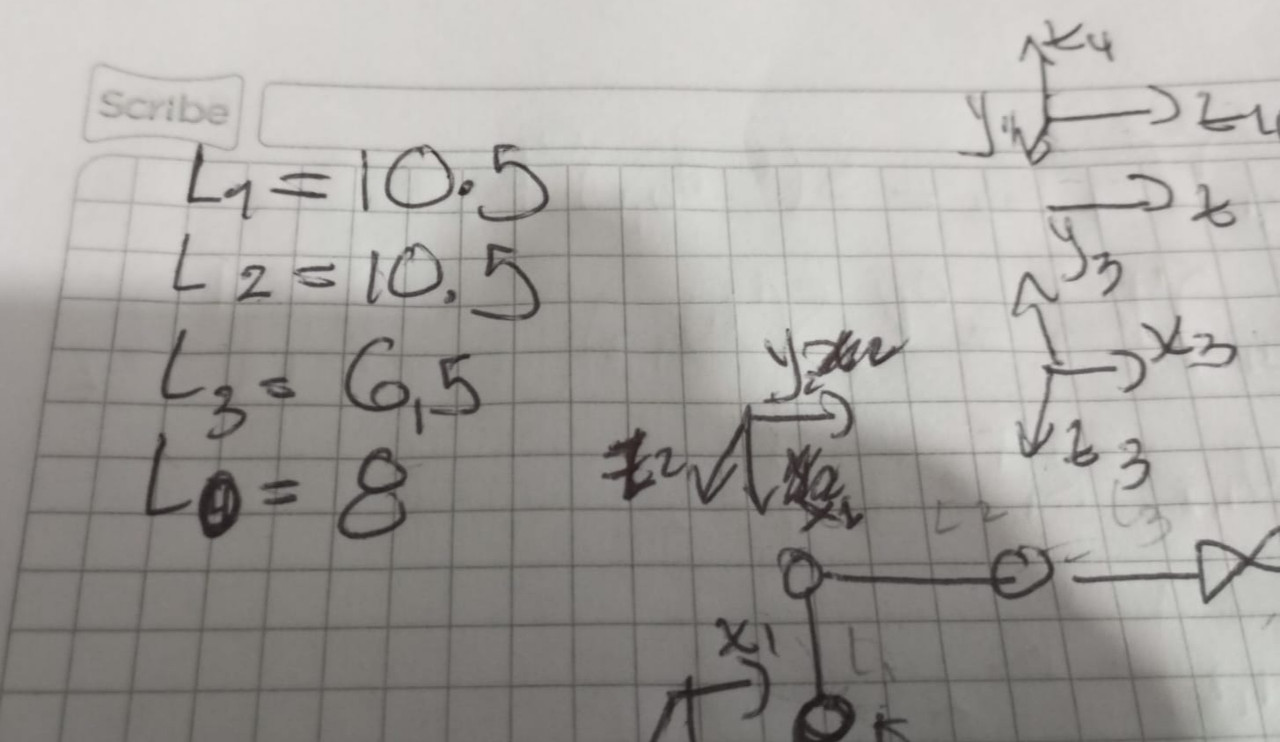 Scribe
L1 = 10.5
L2 = 10.5
L3 = 6,5
L0 = 8
x4
y4
z4
z
y3
x3
z3
y2
z2
x2
L2
L3
x1
L1